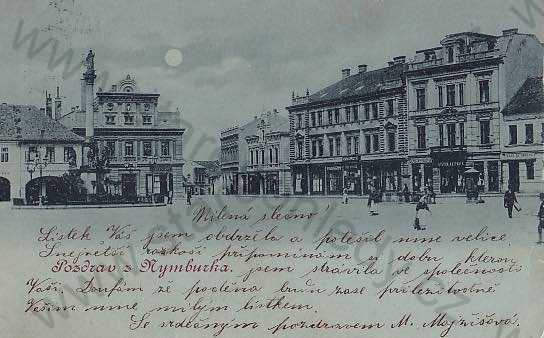 Milená slečno!
Lístek Váš jsem obdržela a potěšil mne velice
S největší radostí připomínám si dobu kterou
Pozdrav z Nymburka. jsem strávila ve společnosti
Vaší. Doufám že poděna brzy zase příležitostně
Vašim mne milým lístkem.
Se srdečným pozdravem M. Majzlišová.